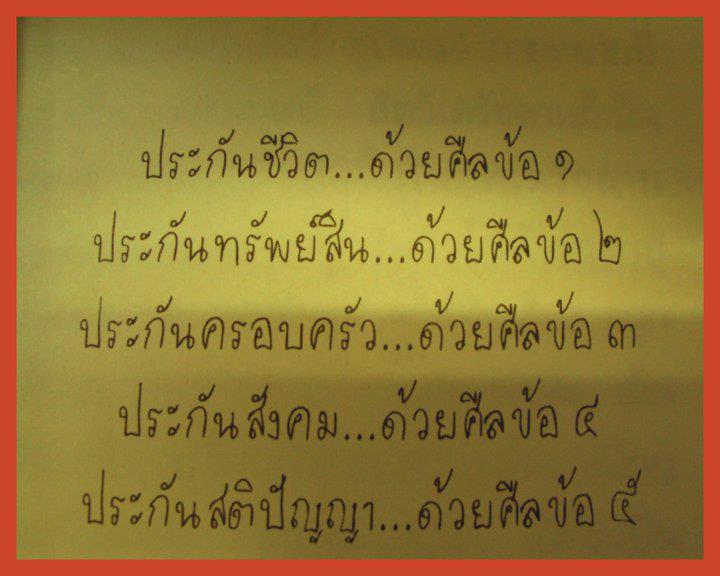 ประกันชีวิต...ด้วยศีลข้อ ๑
ประกันทรัพย์สิน...ด้วยศีลข้อ ๒
ประกันครอบครัว...ด้วยศีลข้อ ๓
ประกันสังคม...ด้วยศีลข้อ ๔
ประกันสติปัญญา...ด้วยศีลข้อ ๕